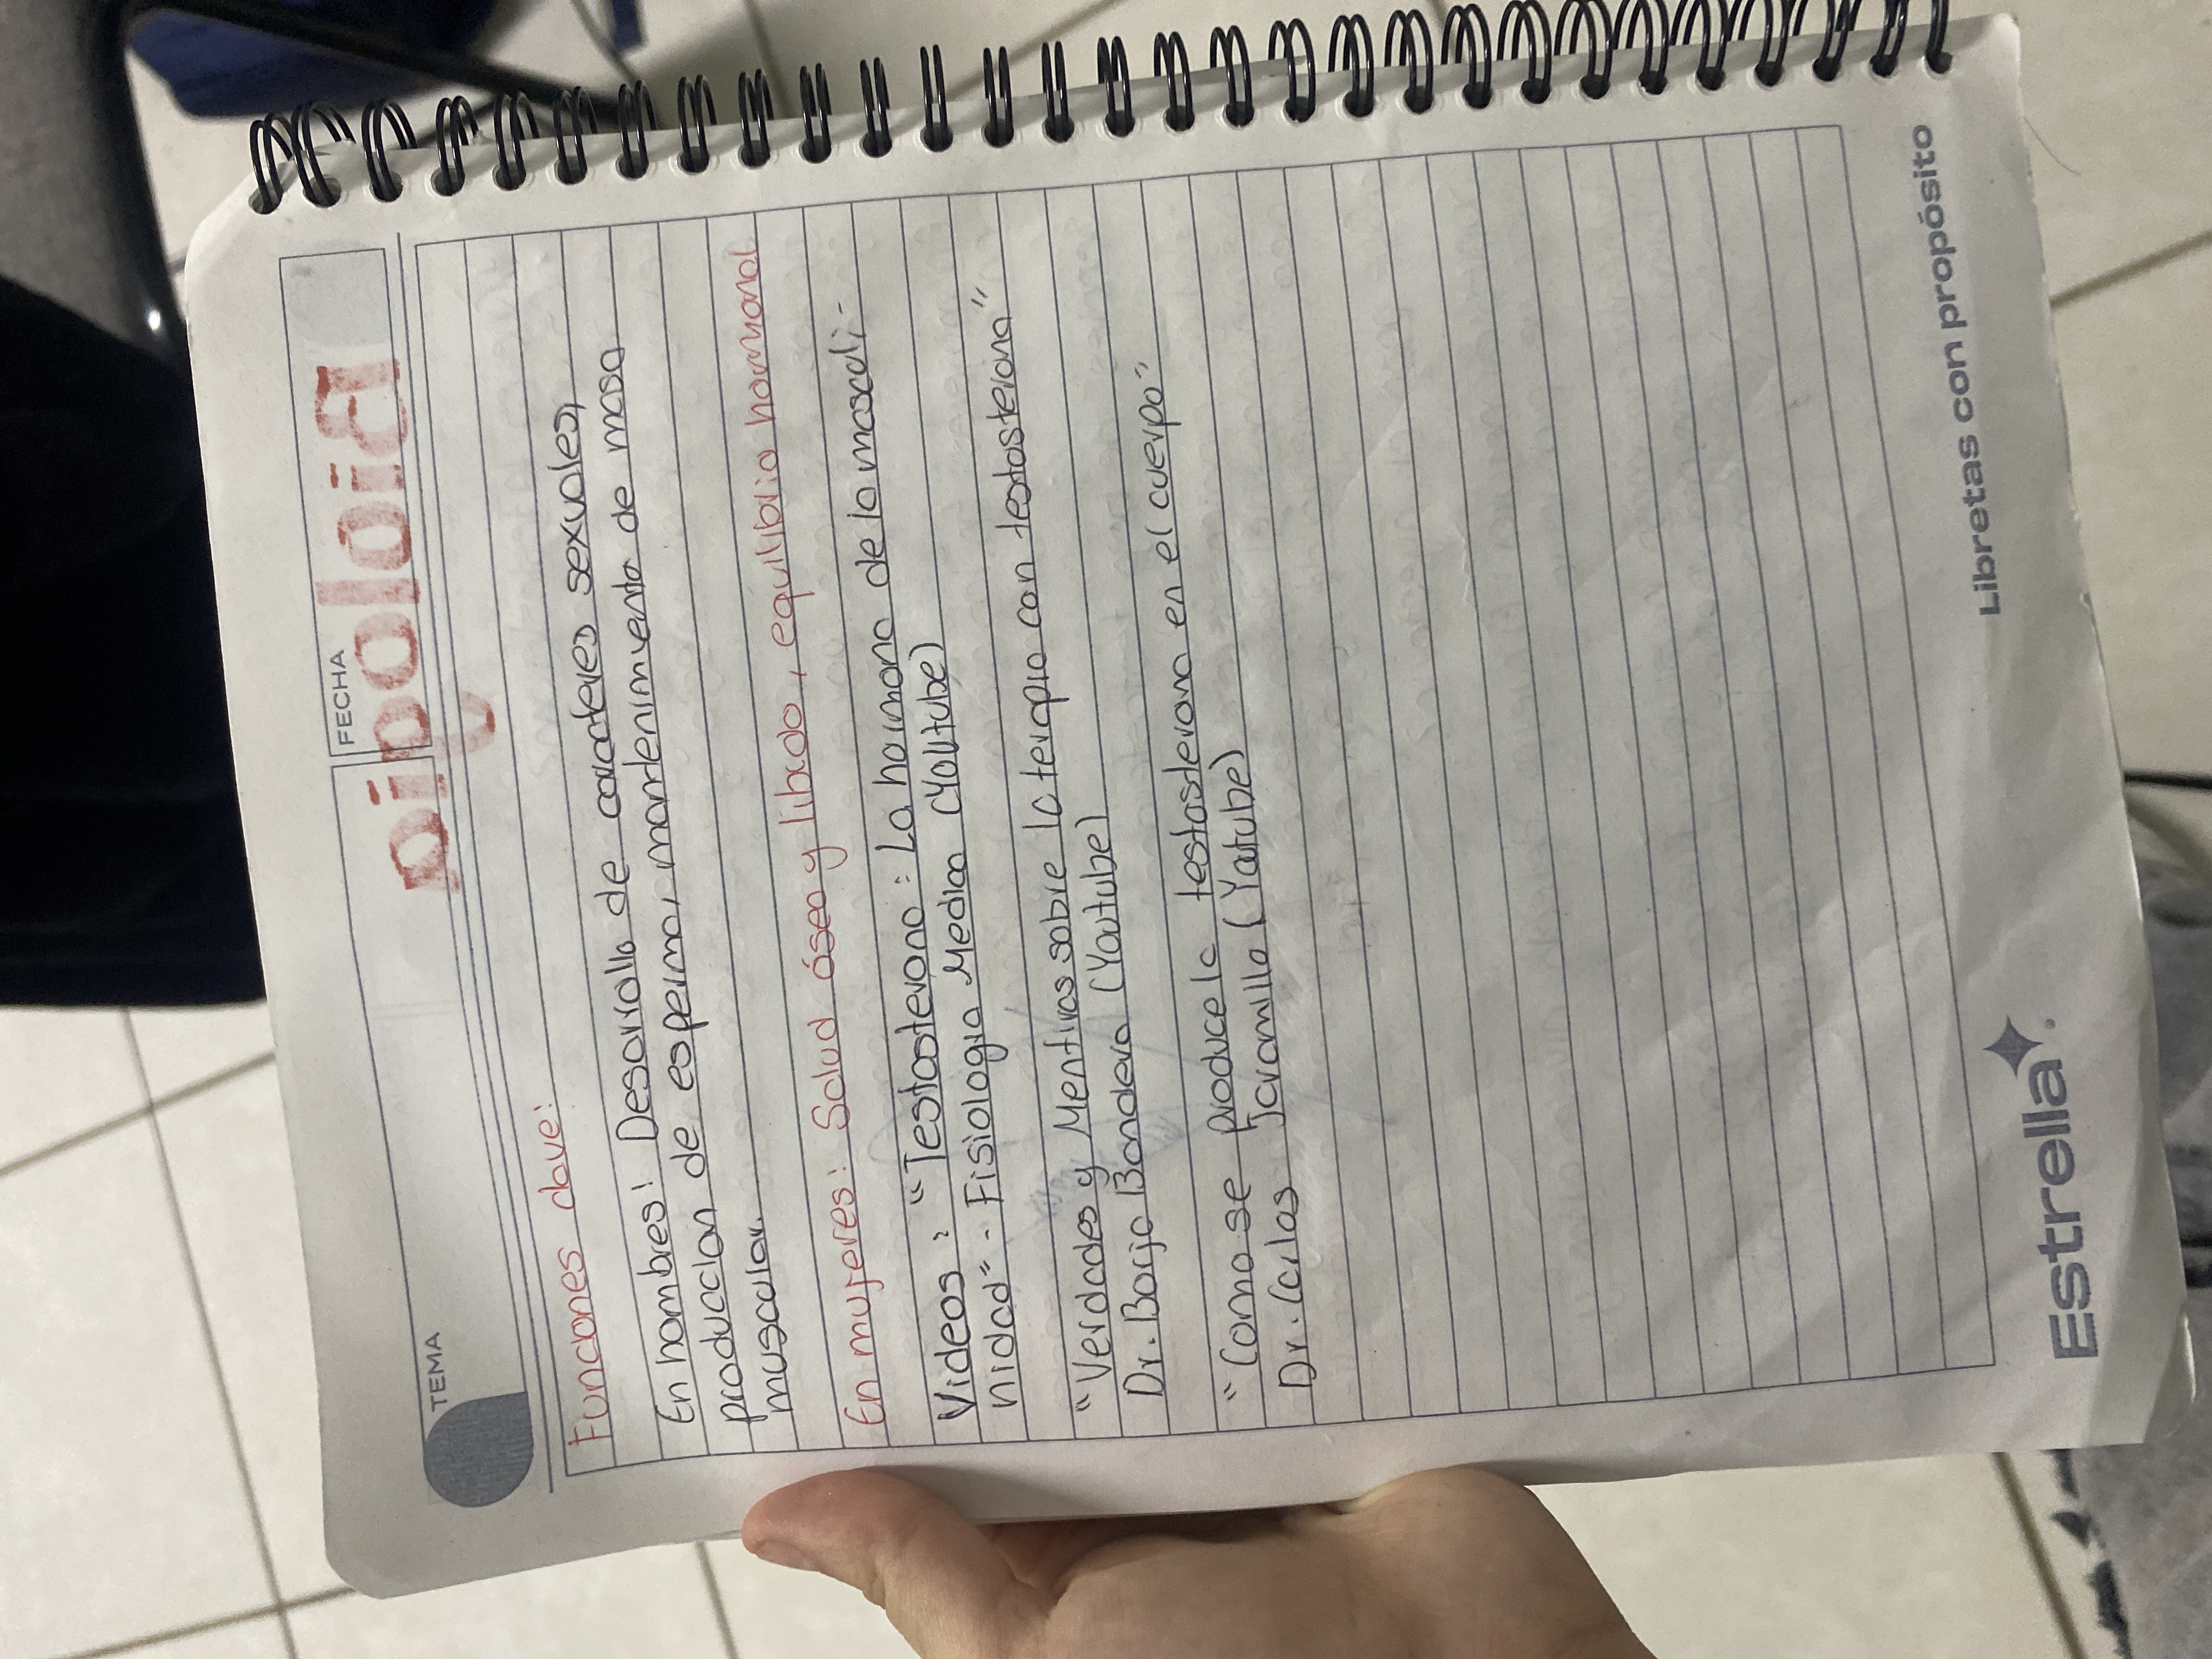 TEMA
FECHA
pipoloia
Funciones clave:
En hombres: Desarrollo de caracteres sexuales,
producción de esperma, mantenimiento de masa
muscular.
En mujeres: Salud ósea y libido, equilibrio hormonal
Videos: "Testosterona: La hormona de la masculi-
nidad" - Fisiologia Medica (Youtube)
"Verdades y Mentiras sobre la terapia con testosterona"
Dr. Borja Bandera (Youtube)
"Como se produce la testosterona en el cuerpo"
Dr. Carlos Jaramillo (Youtube)
Estrella
Libretas con propósito